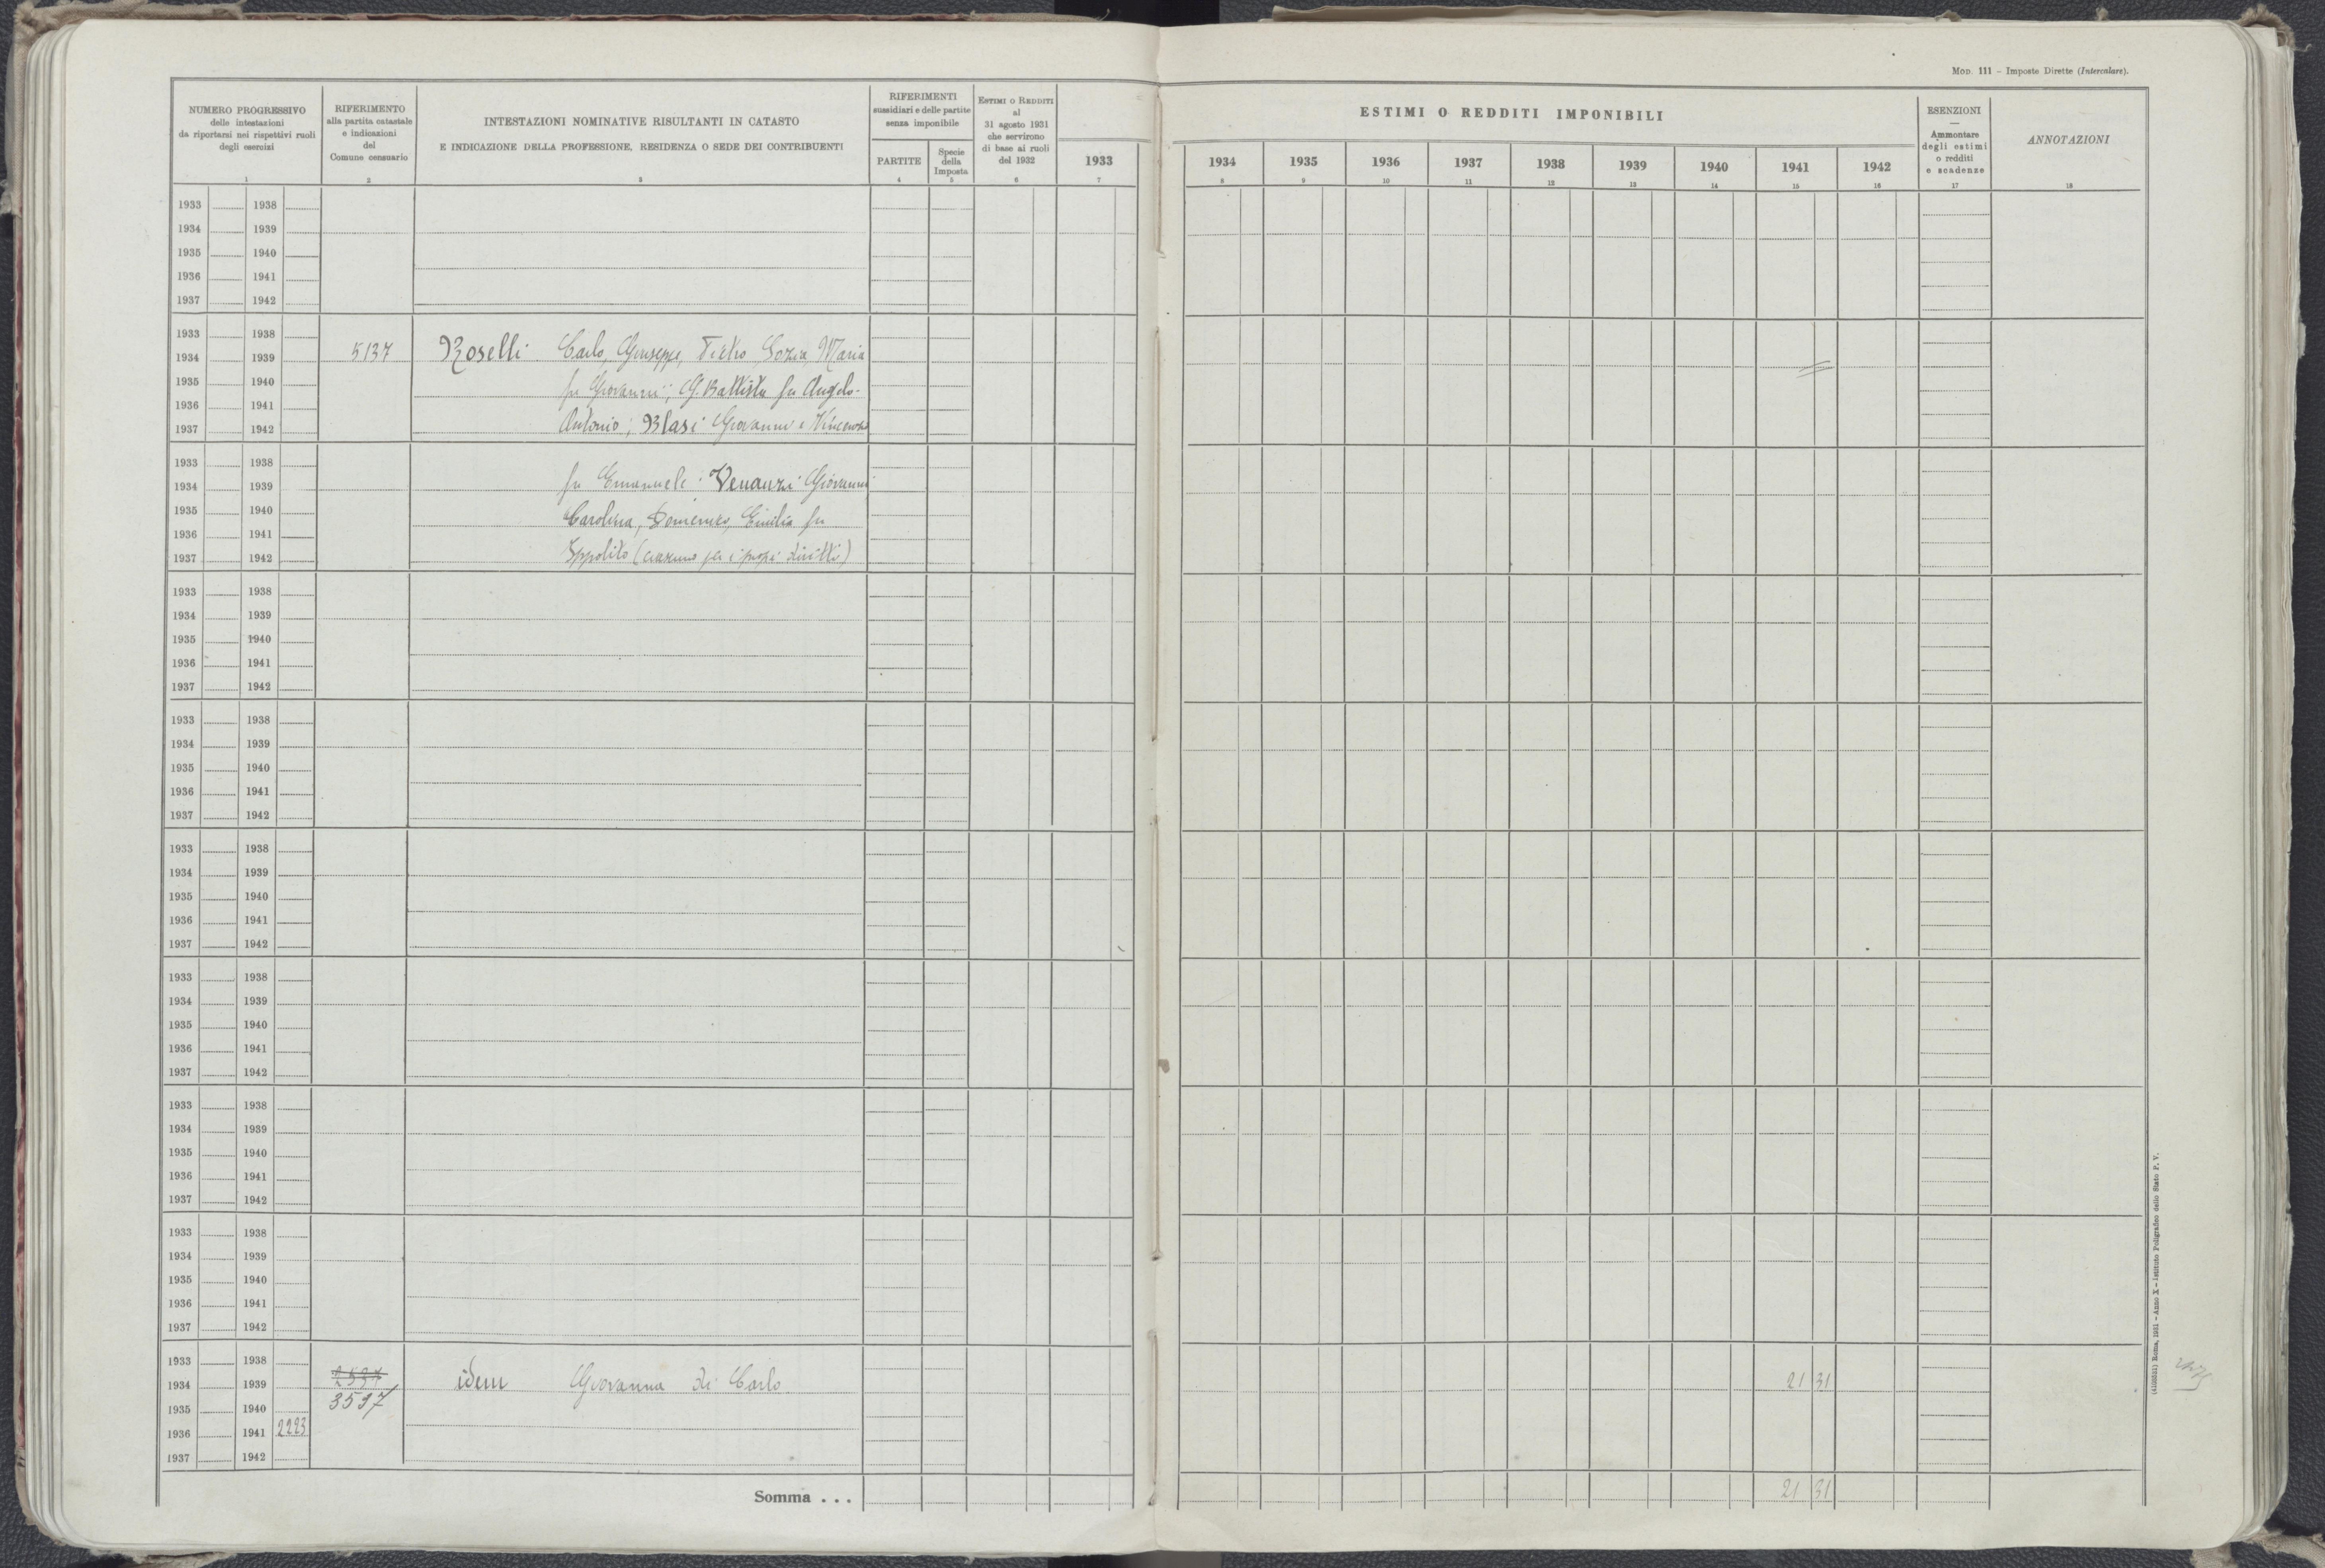 Mod. 111 – Imposte Dirette (Intercalare).
NUMERO PROGRESSIVO
delle intestazioni
da riportarsi nei rispettivi ruoli
degli esercizi
1
RIFERIMENTO
alla partita catastale
e indicazioni
del
Comune censuario
2
INTESTAZIONI NOMINATIVE RISULTANTI IN CATASTO
E INDICAZIONE DELLA PROFESSIONE, RESIDENZA O SEDE DEI CONTRIBUENTI
3
RIFERIMENTI
sussidiari e delle partite
senza imponibile
PARTITE
4
Specie
della
Imposta
5
Estimi o Redditi
al
31 agosto 1931
che servirono
di base ai ruoli
del 1932
6
1933
7
ESTIMI O REDDITI IMPONIBILI
1934 1935 1936 1937 1938 1939 1940 1941 1942
8 9 10 11 12 13 14 15 16
ESENZIONI
—
Ammontare
degli estimi
o redditi
e scadenze
17
ANNOTAZIONI
18
1933 1938
1934 1939
1935 1940
1936 1941
1937 1942
1933 1938
1934 1939 5137 Roselli Carlo, Giuseppe, Pietro, Sozia, Maria
1935 1940 fu Giovanni; G. Battista fu Angelo-
1936 1941
1937 1942 Antonio; Blasi Giovanni e Vincenzo
1933 1938
1934 1939 fu Emanuele; Venanzi Giovanni
1935 1940 Carolina, Domenico, Emilia fu
1936 1941
1937 1942 Ippolito (ciascuno per i propri diritti)
1933 1938
1934 1939
1935 1940
1936 1941
1937 1942
1933 1938
1934 1939
1935 1940
1936 1941
1937 1942
1933 1938
1934 1939
1935 1940
1936 1941
1937 1942
1933 1938
1934 1939
1935 1940
1936 1941
1937 1942
1933 1938
1934 1939
1935 1940
1936 1941
1937 1942
1933 1938
1934 1939
1935 1940
1936 1941
1937 1942
1933 1938
1934 1939 idem Giovanna di Carlo 21 31
1935 1940 3597
1936 1941 2223
1937 1942
Somma . . . 21 31
(4103351) Roma, 1931 – Anno X – Istituto Poligrafico dello Stato P. V.